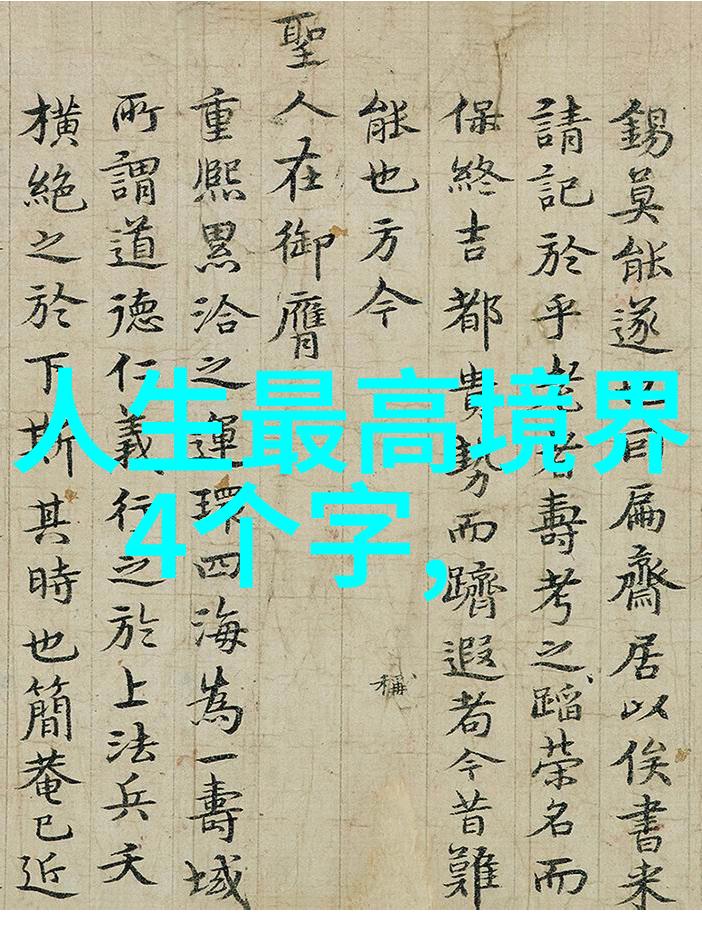 人生最高境界
4个字,
錫莫能遂也同扁齋居以俟書来
請記於乎老者壽考之蹈荣名而
保終吉都貴勢而躋遐者今昔難
能也方今
稱
聖人在御膺
重熙累洽之運環四海為一壽域
所謂道德仁義行之於上法兵夭
橫絶之於下斯其時也簡菴已近